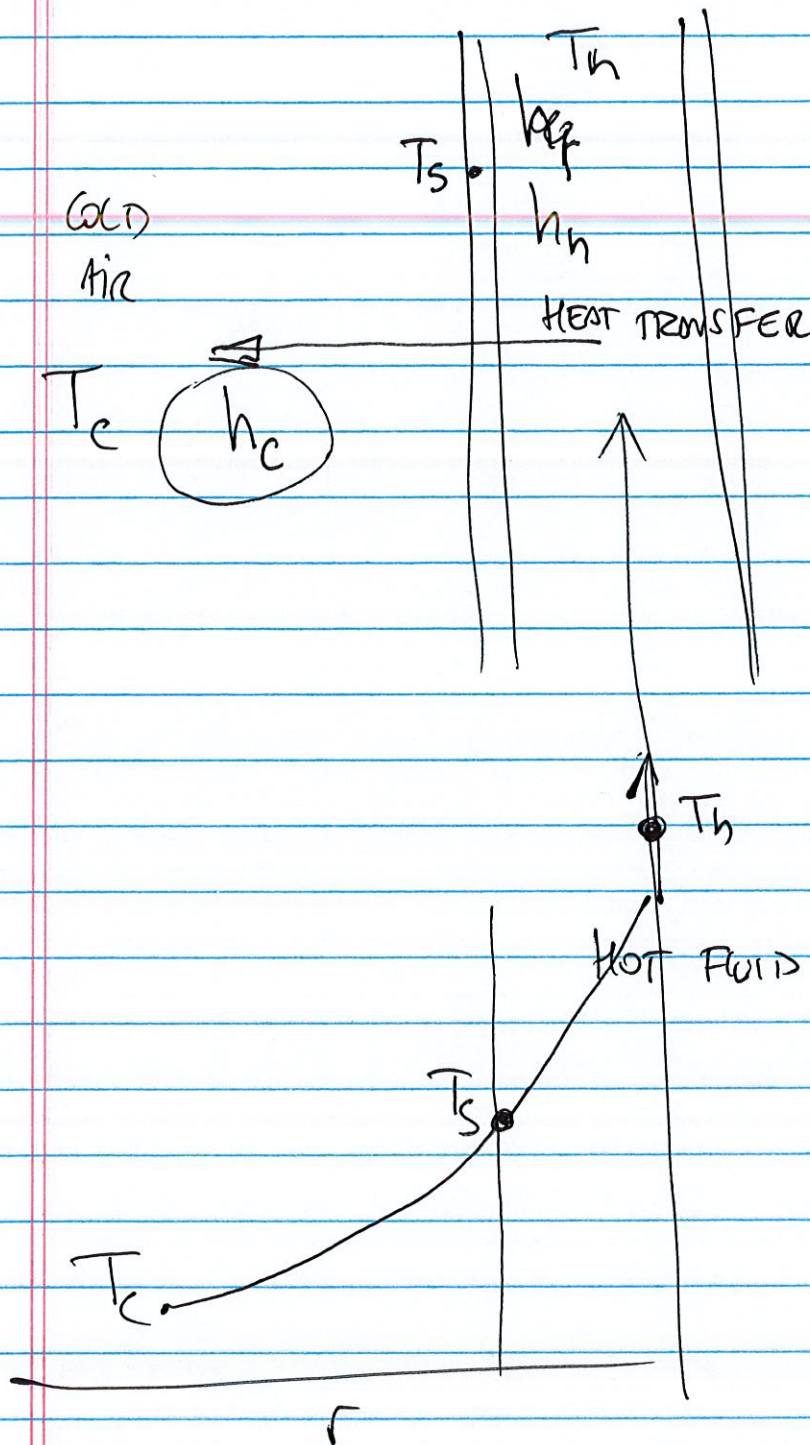 Th
Ts
hh
COLD
AIR
HEAT TRANSFER
Tc
hc
Th
HOT FLUID
Ts
Tc
r